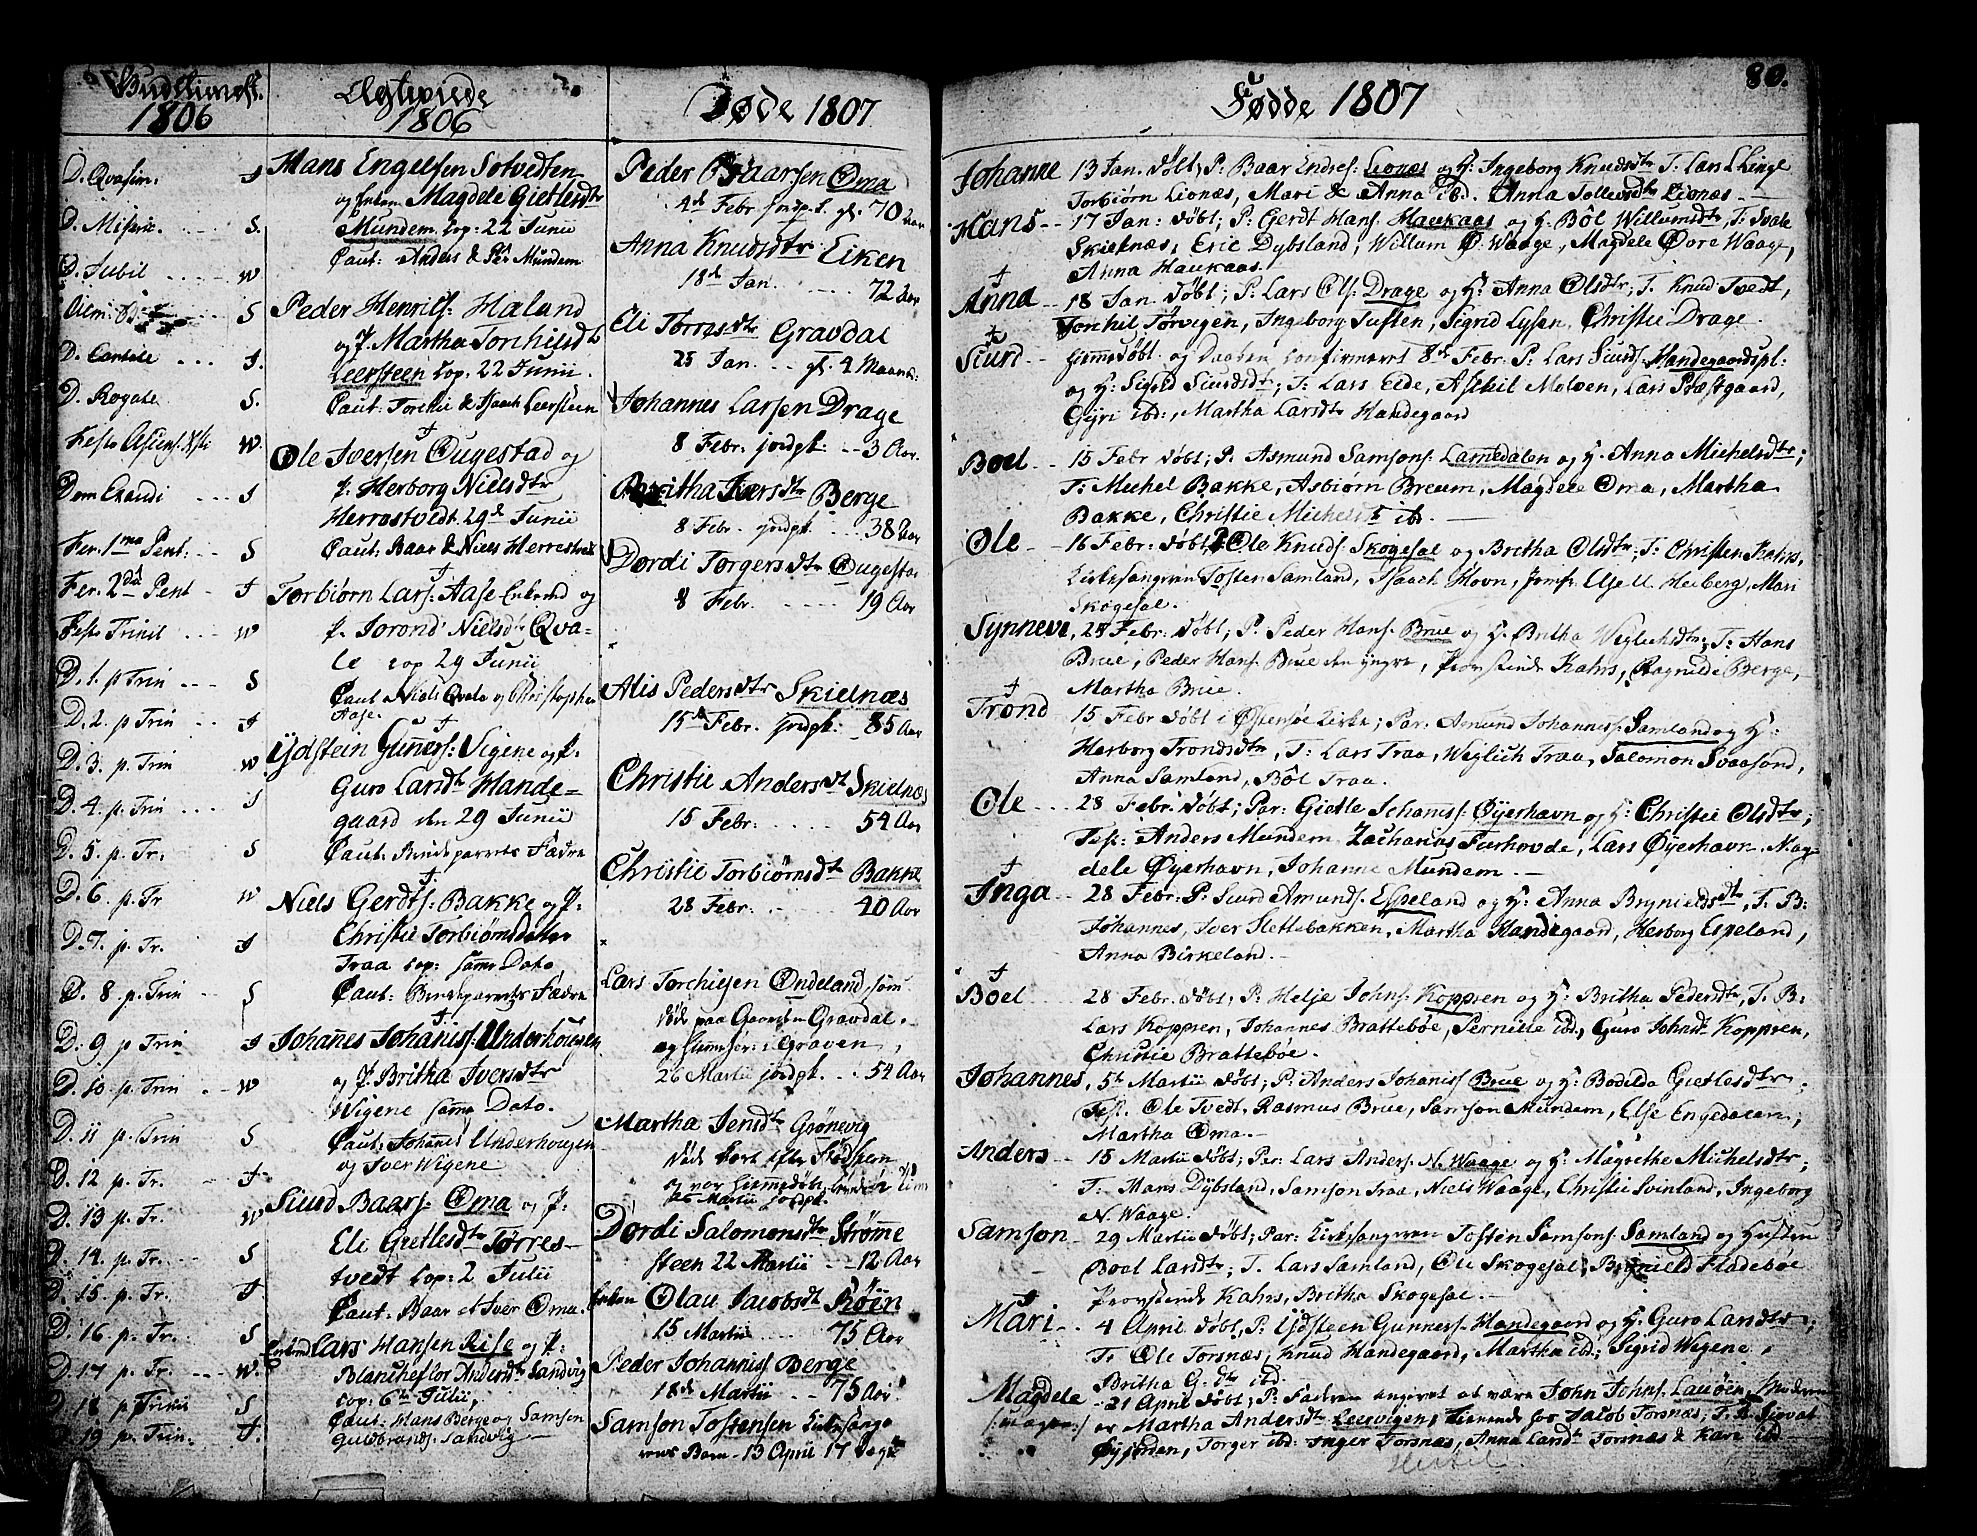 1806
D. Qvasim. J
D. Miseric. S.
D. Jubil W
S
D. Cantate J.
D. Rogate S.
Festo W.
Dom Exaudi J
Fer. 1ma Pent: S
Fer. 2da Pent J
Festo Trinit W
D. 1. p Trin S
D. 2. p Trin J
D. 3. p. Trin W
D. 4. p. Trin J
D. 5. p. Tr. S
D. 6. p. Tr W
D. 7. p. Tr. J
D. 8. p. Trin S
D. 9 p Trin J
D. 10. p. Trin W
D. 11 p. Trin S
D. 12 p. Tr. J
D. 13 p. Tr. W
D. 14. p. Tr. S
D. 15. p. Tr. J
D. 16 p. Tr. S
D. 17 p. Tr. W.
D. 18 p. Trin S
D. 19 p. Trin. J.
Ægteviede
1806
Hans Engelsen Sotvedten
og Enken Magdele Gietlesdtr
Mundem cop: 22 Junii
Caut: Anders & Per Mundem
Peder Henrics: Haland
og P. Martha Torchilsdtr
Leersteen cop: 22 Junii.
Caut: Torchil & Isaach Leersteen
Ole Iversen Øugestad og
P. Herborg Nielsdtr
Herrestvedt 29d Junii
Caut: Baar & Niels Herrestvedt
Torbiørn Lars: Aase Enkemd og
P. Jorond Nielsdtr Qva-
le cop 29 Junii
Caut Niels Qvale og Christopher
Aase.
Ydstein Guners: Vigene og P.
Guro Larsdtr Hande-
gaard den 29 Junii
Caut: Brudeparrets Fædre
Niels Gerdts: Bakke og P.
Christie Torbiørnsdatter
Traa cop: samme Dato
Caut: Brudeparrets Fædre
Johannes Johaniss: Underhougen
og P. Britha Iversdtr
Wigene samme Dato.
Caut: Johannes Underhougen
og Iver Wigene
Siurd Baars: Oma og P.
Eli Gietlesdtr Tørres-
tvedt cop: 2 Julii
Caut: Baar et Iver Oma.
Lars Hansen Rise og P.
Blancheflor Andersdtr Sandvig
cop: 6te Julii,
Caut: Hans Berge og Samson
Guldbrands: Sandvig
Døde 1807
Peder Baarsen Oma
4de Febr jordp. gl. 70 Aar
Anna Knudsdtr Eiken
18de Jan. 72 Aar
Eli Torresdtr Gravdal
25 Jan. gl. 4 Maaned:
Johannes Larsen Drage
8 Febr. jordpt. 3 Aar.
Britha Iversdtr Berge
8 Febr. jordpt. 38 Aar
Dordi Torgersdtr Øugestad
8 Febr. 19 Aar
Alis Pedersdtr Skielnæs
15de Febr. jordpt: 85 Aar
Christie Andersdtr Skielnæs
15 Febr. 54 Aar
Christie Torbiørnsdtr Bakke
28 Febr. 40 Aar
Lars Torchilsen Øndeland, som
døde paa Gaarden Gravdal,
og i Graven,
26 Martii jordpt. 54 Aar
Martha Jensdtr Grønevig
døde kort efter Fødselen
og var hiemmedøbt
Martii jordpt.
Dordi Salomonsdtr Strømme
steen 22 Martii 12 Aar
Enken Olau Jacobsdtr Røen
15 Martii 75 Aar
Peder Johaniss Berge
18de Martii 75 Aar
Samson Tostensen Kirkesange
rens Barn 13 April 17 Dage
80.
Fødde 1807
Johanne 13 Jan. døbt; P. Baar Endres: Lionæs og H: Ingeborg Knudsdtr T: Lars L Linge
Torbiørn Lionæs, Mari & Anna ibd. Anna Tollevsdtr Lionæs
Hans 17 Jan: døbt; P: Gerdt Hans: Haukaas og H. Bôl Willumsdtr, T: Svale
Skielnæs, Eric Dybsland, Willum Ø. Waage, Magdele Øore Waage,
Anna Haukaas.
Anna 18 Jan. døbt; P: Lars Ols: Drage og H: Anna Olsdtr; T. Knud Tvedt,
Torchil Tørvigen, Ingeborg Tuften, Sigrid Lysen, Christie Drage.
Siurd hiemmedøbt og Daaben confirmeret 8de Febr. P: Lars Siurds: Handegaardspl.
og H: Sigrid Siurdsdtr; T: Lars Eide, Askiil Molven, Lars Præstgaard,
Gyri ibd:, Martha Larsdtr Handegaard
Boel 15 Febr døbt; P. Asmund Samsons: Lamedalen og H. Anna Michelsdtr;
T: Michel Bakke, Asbiørn Breum, Magdele Oma, Martha
Bakke, Christie Michelsdtr ibd.
Ole 16 Febr: døbt; P. Ole Knuds: Skogesæl og Britha Olsdtr; T: Christen Kahrs,
Kirkesangeren Tosten Samland, Isaach Hovn, Jomfr. Heiberg, Mari
Skogesæl.
Synneve, 28 Febr: døbt; P. Peder Hans: Brue og H. Britha Weglichsdtr; T: Hans
Brue, Peder Hans: Brue den yngre, Provstinde Kahrs, Ragnilde Berge,
Martha Brue.
Trond 15 Febr døbt i Østensøe Kirke; Par: Amund Johanness: Samland og H:
Herborg Trondsdtr, T: Lars Traa, Weglich Traa, Salomon Svaasond,
Anna Samland, Bôl Traa.
Ole 28 Febr: døbt; Par: Gietle Johanis: Øyerhavn og H: Christie Olsdtr;
Test: Anders Mundem Zacharias Furhovde, Lars Øyerhavn Mag-
dele Øyerhavn, Johanne Mundem.
Inga 28 Febr: P: Siurd Amunds: Espeland og H: Anna Brynieldsdtr, T. B:
Johannes, Iver Slettebakken, Martha Handegaard, Herborg Espeland,
Anna Birkeland.
Boel 28 Febr. døbt, P. Helje Johns: Koppren og H: Britha Pedersdtr, T. B:
Lars Koppren, Johannes Brattebøe, Pernille ibd, Guro Johnsdtr Koppren,
Christie Brattebøe.
Johannes, 5te Martii døbt; P: Anders Johaniss Brue og H: Bodilda Gietlesdtr.
Test. Ole Tvedt, Rasmus Brue, Samson Mundem, Else Engedalen;
Martha Oma.
Anders 15 Martii døbt; Par: Lars Anders: N. Waage og H: Magrethe Michelsdtr;
T: Mans Dybsland, Samson Traa, Niels Waage, Christie Svinland, Ingeborg
N. Waage.
Samson 29 Martii døbt; Par: Kirkesangeren Tosten Samsons: Samland og Hustru
Boel Larsdtr; T. Lars Samland, Ole Skogesæl, Brynield Fladebøe
Provstinde Kahrs, Britha Skogesæl.
Mari 4 April døbt, P: Ydsteen Gunners: Handegaard og H: Guro Larsdtr;
T: Ole Torsnæs, Knud Handegaard, Martha ibd; Sigrid Wigene,
Britha G. dtr ibd.
Magdele 21 April døbt, P. Faderen angivet at være John Johns: Lauøen, Moderen
er Martha Andersdtr Leervigen, tienende for Jacob Torsnæs; T.
Øyjorden, Torger ibd: Inger Torsnæs, Anna Larsdtr Torsnæs & Kari ibd